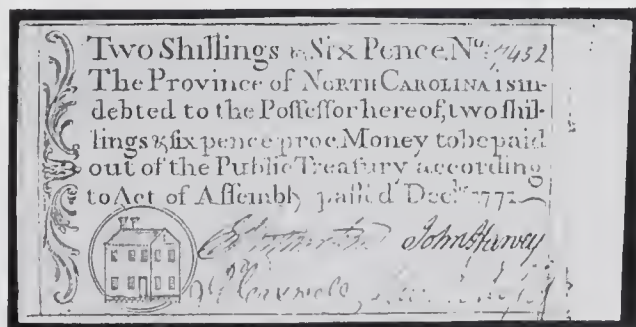 Two Shillings & Six Pence. No. 7452
The Province of NORTH CAROLINA is in-
debted to the Poſſeſſor hereof, two ſhil-
lings & ſix pence proc. Money to be paid
out of the Public Treaſury according
to Act of Aſſembly paſſed Decbr. 1771
John Harvey